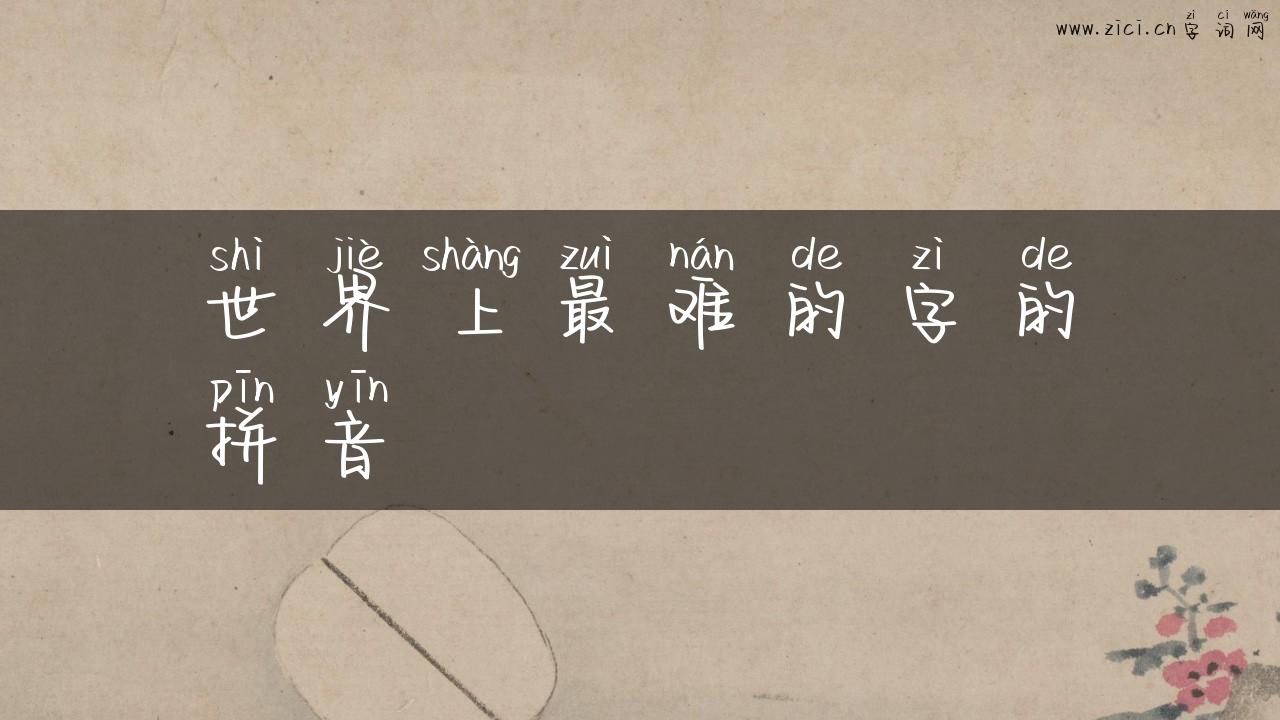 zì cí wǎng
www.zici.cn 字 词 网
shì jiè shàng zuì nán de zì de
世 界 上 最 难 的 字 的
pīn yīn
拼 音